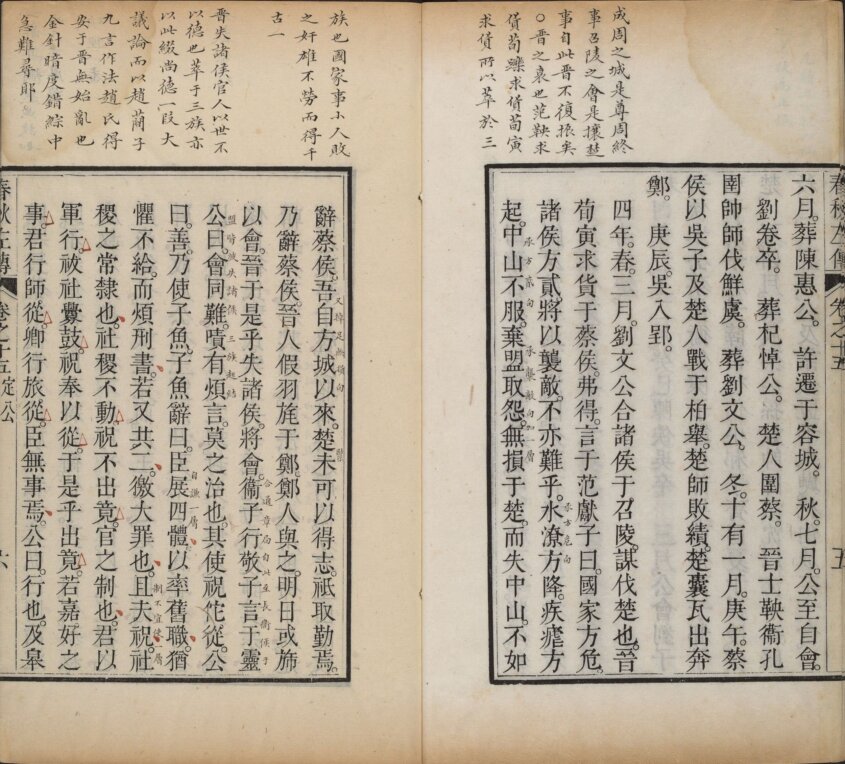 成周之城是尊周終
事召陵之會是攘楚
事自此晉不復振矣
○晉之衰也范鞅求
貨荀躒求貨荀寅
求貨所以萃於三
春秋左傳 卷之十五 五
六月。葬陳惠公。 許遷于容城。 秋。七月。公至自會。
劉卷卒。 葬杞悼公。 楚人圍蔡。 晉士鞅衞孔
圉帥師伐鮮虞。 葬劉文公。 冬。十有一月。庚午。蔡
侯以吳子及楚人戰于柏舉。楚師敗績。楚囊瓦出奔
鄭。 庚辰。吳入郢。
四年。春。三月。劉文公合諸侯于召陵。謀伐楚也。晉
荀寅求貨于蔡侯。弗得。言于范獻子曰。國家方危。
諸侯方貳。將以襲敵。不亦難乎。水潦方降。疾瘧方
起。中山不服。棄盟取怨。無損于楚。而失中山。不如
族也國家事小人敗
之奸雄不勞而得千
古一
晉失諸侯官人以世不
以德也萃于三族亦
以此綴尚德一段大
議論而以趙簡子
九言作法趙氏得
安于晉無始亂也
金針暗度錯綜中
急難尋郎
辭蔡侯。吾自方城以來。楚未可以得志。祇取勤焉。
乃辭蔡侯。晉人假羽旄于鄭。鄭人與之。明日或旆
以會。晉于是乎失諸侯。將會。衞子行敬子言于靈
公曰。會同難。嘖有煩言。莫之治也。其使祝佗從。公
曰。善。乃使子魚。子魚辭曰。臣展四體。以率舊職。猶
懼不給。而煩刑書。若又共二。徼大罪也。且夫祝。社
稷之常隸也。社稷不動。祝不出竟。官之制也。君以
軍行。祓社釁鼓。祝奉以從。于是乎出竟。若嘉好之
事。君行師從。卿行旅從。臣無事焉。公曰。行也。及皋
春秋左傳 卷之十五 定公 六